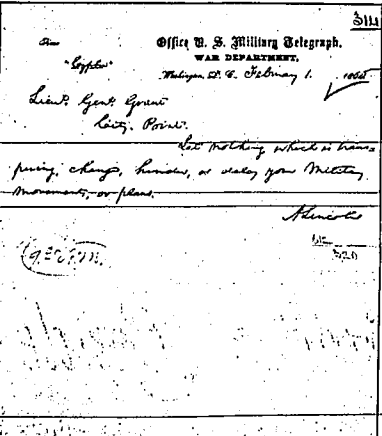 314
Office U. S. Military Telegraph,
WAR DEPARTMENT,
"Cypher" Washington, D. C. February 1. 1865
Lieut. Genl. Grant
City. Point.
Let nothing which is trans-
piring, change, hinder, or delay your Military
movements, or plans.
A. Lincoln